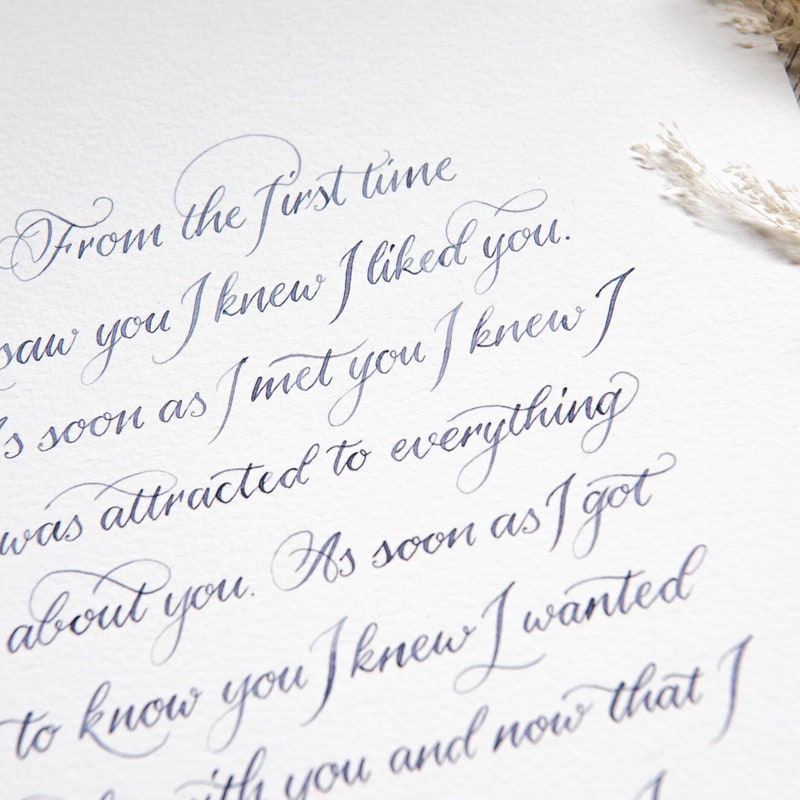 From the first time
saw you I knew I liked you.
As soon as I met you I knew I
was attracted to everything
about you. As soon as I got
to know you I knew I wanted
with you and now that I